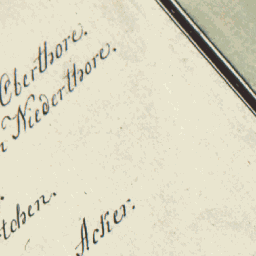 Oberthore.
n Niederthore.
tchen.
Acker.